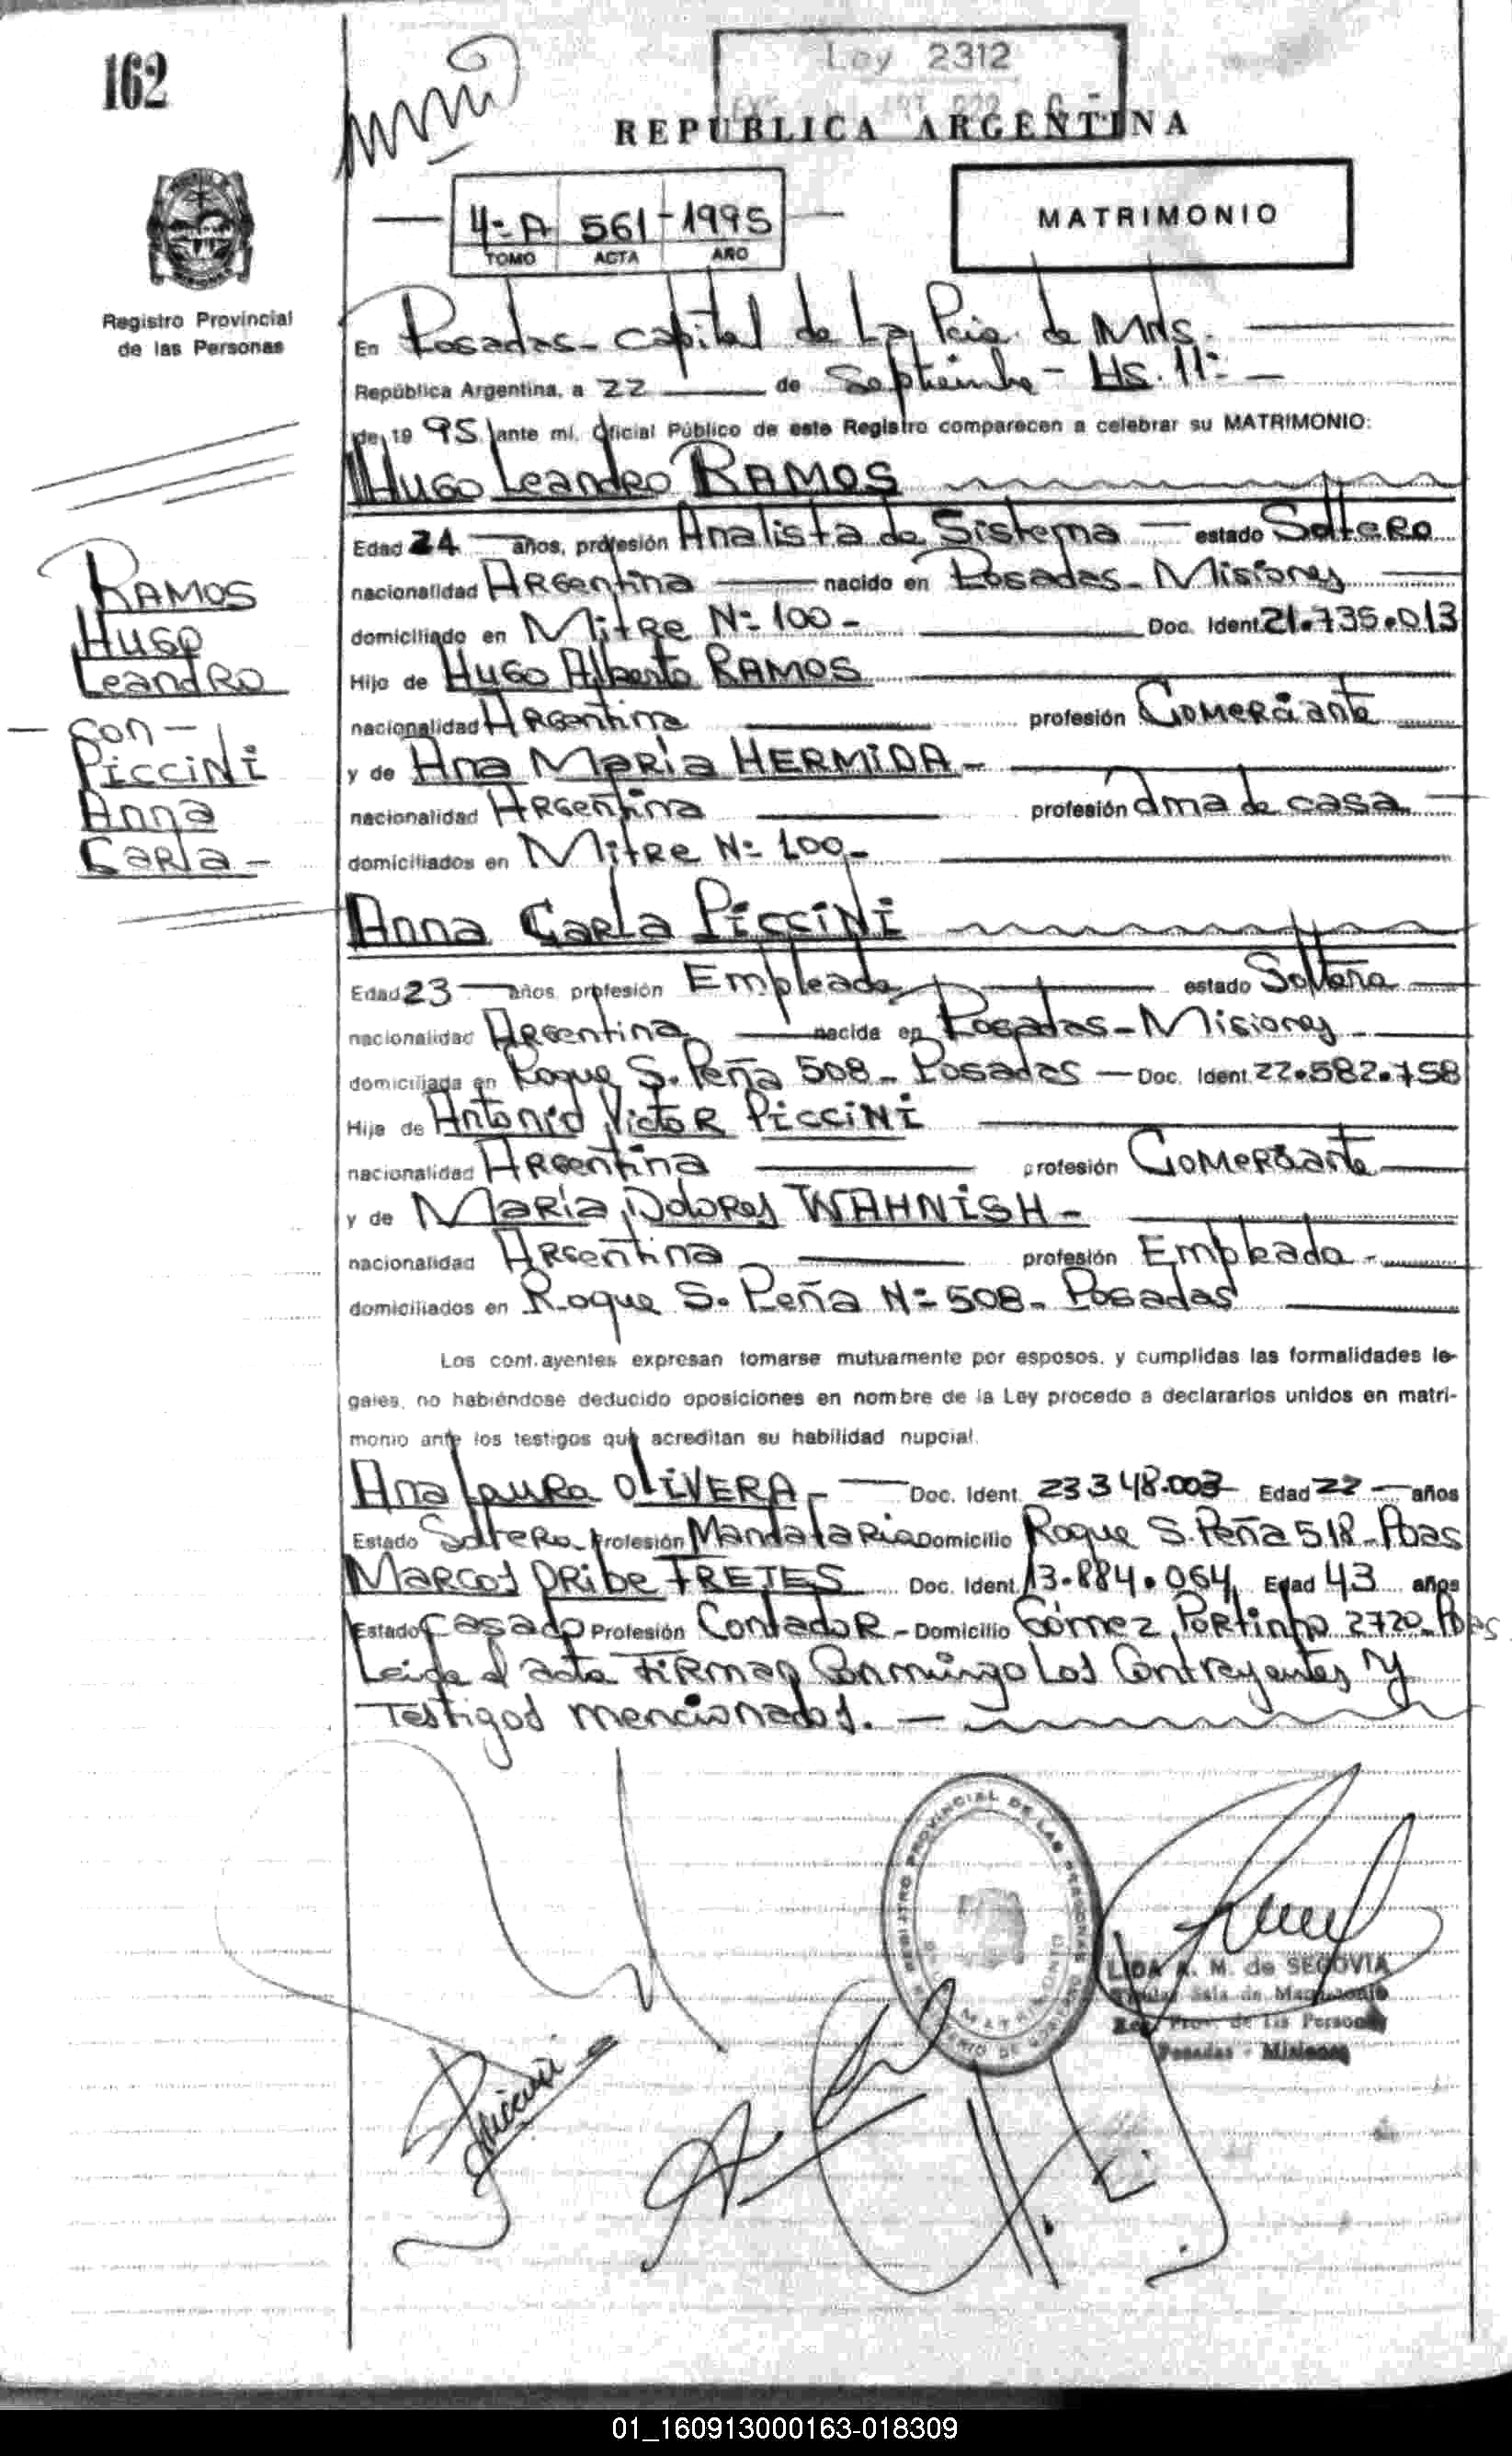 162
Ley 2312
REPUBLICA ARGENTINA
4-A 561-1995
TOMO ACTA AÑO
MATRIMONIO
Registro Provincial
de las Personas
En Posadas-capital de La Pcia. de Mns.
República Argentina, a 22 de Septiembre - Hs. 11:
de 1995 ante mí, Oficial Público de este Registro comparecen a celebrar su MATRIMONIO:
Hugo Leandro RAMOS
Edad 24 años, profesión Analista de Sistema estado Soltero
nacionalidad Argentina nacido en Posadas-Misiones
domiciliado en Mitre Nº 100- Doc. Ident. 21.735.013
Hijo de Hugo Alberto RAMOS
nacionalidad Argentina profesión Comerciante
y de Ana María HERMIDA-
nacionalidad Argentina profesión Ama de casa
domiciliados en Mitre Nº 100-
RAMOS
Hugo
Leandro
- con -
PicciNi
Anna
Carla-
Anna Carla PicciNi
Edad 23 años profesión Empleada estado Soltera
nacionalidad Argentina nacida en Posadas-Misiones
domiciliada en Roque S. Peña 508- Posadas - Doc. Ident. 22.582.758
Hija de Antonio Victor PicciNi
nacionalidad Argentina profesión Comerciante
y de María Dolores WAHNISH-
nacionalidad Argentina profesión Empleada-
domiciliados en Roque S. Peña Nº 508- Posadas
Los cont.ayentes expresan tomarse mutuamente por esposos, y cumplidas las formalidades le-
gales, no habiéndose deducido oposiciones en nombre de la Ley procedo a declararlos unidos en matri-
monio ante los testigos que acreditan su habilidad nupcial.
Ana Laura OLIVERA- Doc. Ident. 23.348.003 Edad 22 años
Estado Soltera Profesión Mandataria Domicilio Roque S. Peña 518-Pdas
Marcos Oribe FRETES Doc. Ident. 13.884.064 Edad 43 años
Estado Casado Profesión Contador- Domicilio Gómez Portinho 2720-Pdas
Leida el acta Firman Conmingo Los Contrayentes y
Testigos mencionados.
REGISTRO PROVINCIAL DE LAS PERSONAS
MATRIMONIO
LIDA A. M. de SEGOVIA
Titular Sala de Matrimonio
Reg. Prov. de las Personas
Posadas - Misiones
Piccini
01_160913000163-018309